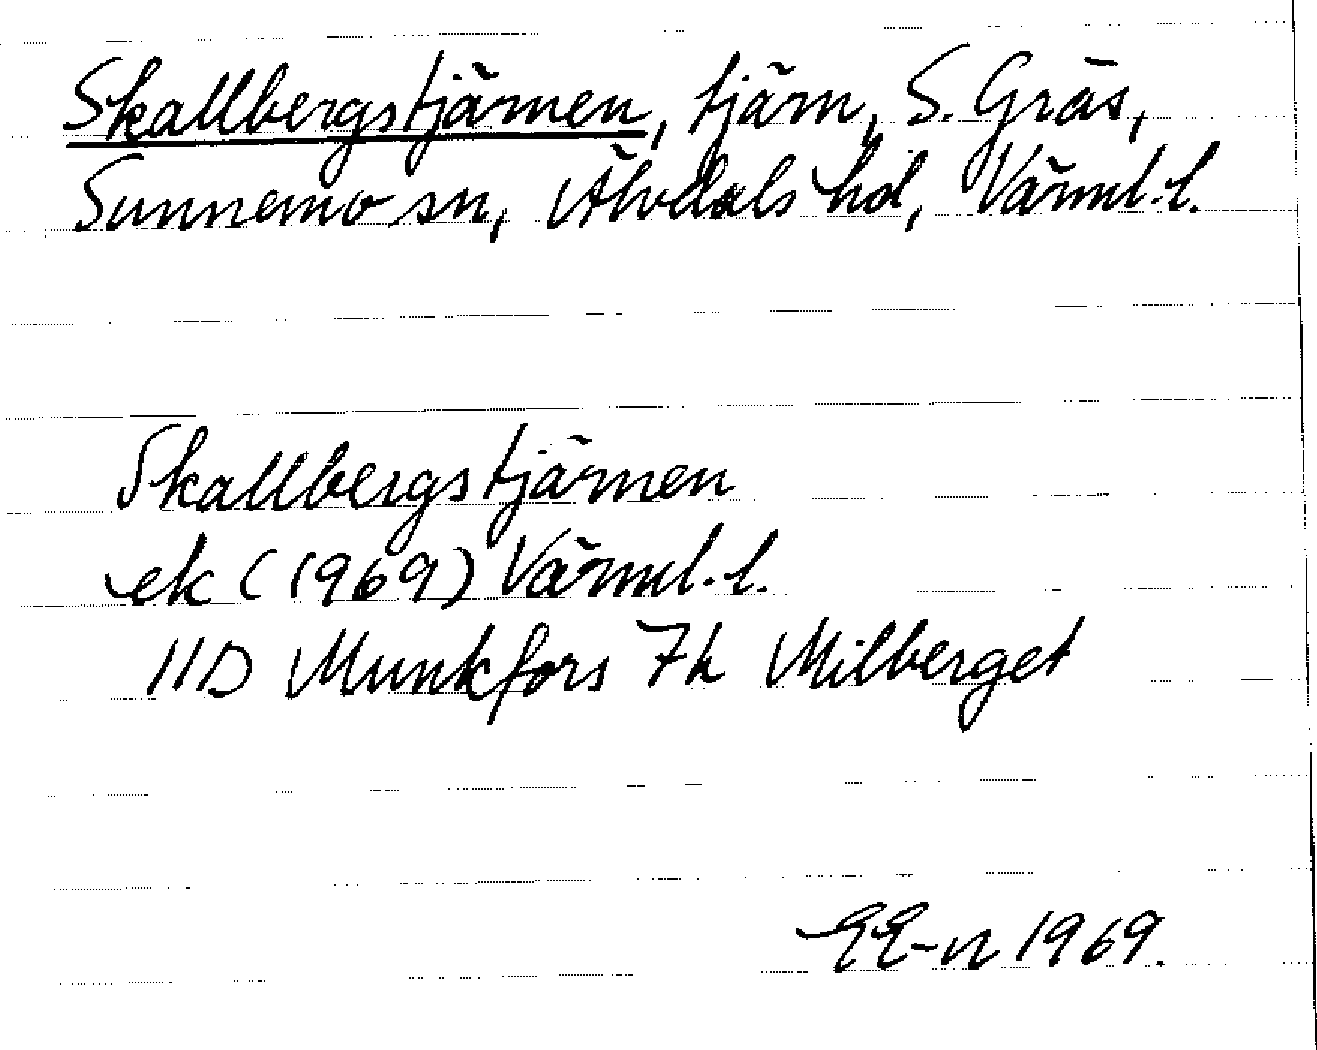 Skallbergstjärnen, tjärn, S. Gräs,
Sunnemo sn, Älvdals hd, Värml. l.
Skallbergstjärnen
ek (1969) Värml. l.
11D Munkfors 7h Milberget
EE-n 1969.